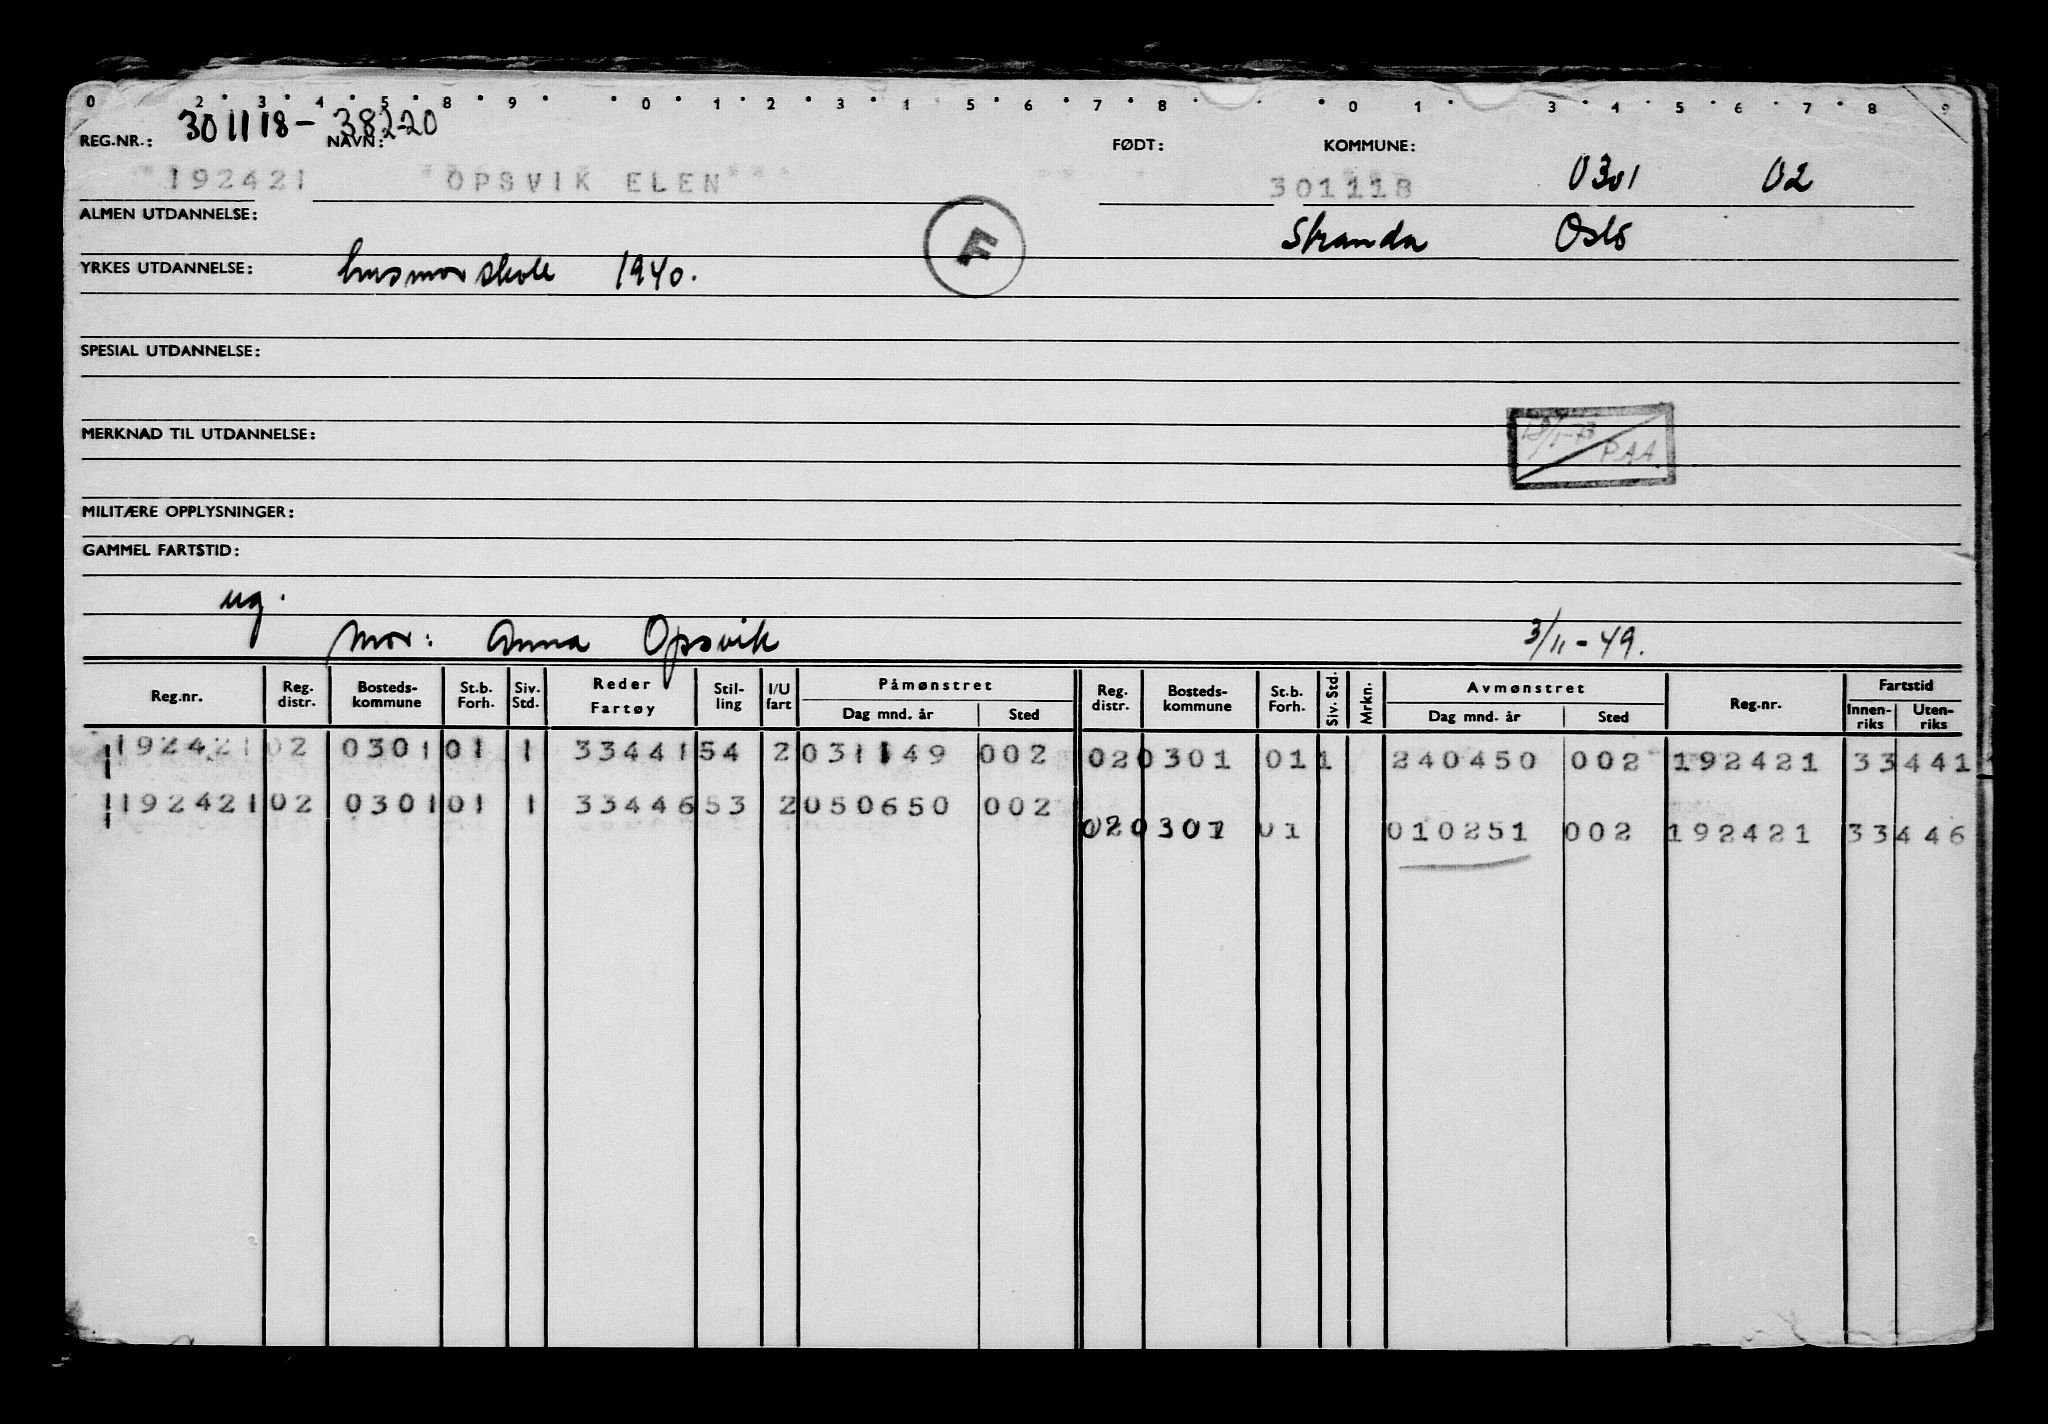 0 2 3 4 5 8 9 0 1 2 3 1 5 6 7 8 0 1 3 4 5 6 7 8 9
REG.NR.: 301118-38220 NAVN: FØDT: KOMMUNE:
192421 OPSVIK ELEN 301118 0301 02
ALMEN UTDANNELSE: Stranda Oslo
F
YRKES UTDANNELSE: husmorskole 1940.
SPESIAL UTDANNELSE:
MERKNAD TIL UTDANNELSE:
PAA.
MILITÆRE OPPLYSNINGER:
GAMMEL FARTSTID:
ug.
Mor: Anna Opsvik 3/11-49.
Reg.nr. Reg. distr. Bosteds-kommune St.b. Forh. Siv. Std. Reder Fartøy Stil-ling I/U fart Påmønstret Dag mnd. år Sted Reg. distr. Bosteds-kommune St.b. Forh. Siv. Std. Mrkn. Avmønstret Dag mnd. år Sted Reg.nr. Fartstid Innen-riks Uten-riks
192421 02 0301 01 1 33441 54 2 031149 002 02 0301 01 1 240450 002 192421 33441
192421 02 0301 01 1 33446 53 2 050650 002
02 0301 01 010251 002 192421 33446